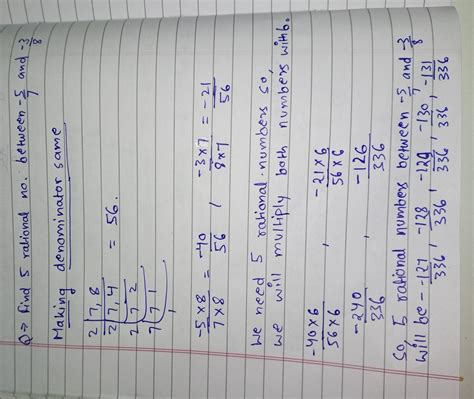 Q ⇒ Find 5 rational no. between -5/7 and -3/8
Making denominator same
2 | 7, 8
2 | 7, 4 = 56.
2 | 7 2
7 | 7 1
1
-5×8 / 7×8 = -40/56 , -3×7 / 8×7 = -21/56
We need 5 rational numbers so,
we will multiply both numbers with 6.
-40×6 / 56×6 , -21×6 / 56×6
-240/336 , -126/336
So, 5 rational numbers between -5/7 and -3/8
will be - -127/336 , -128/336 , -129/336 , -130/336 , -131/336